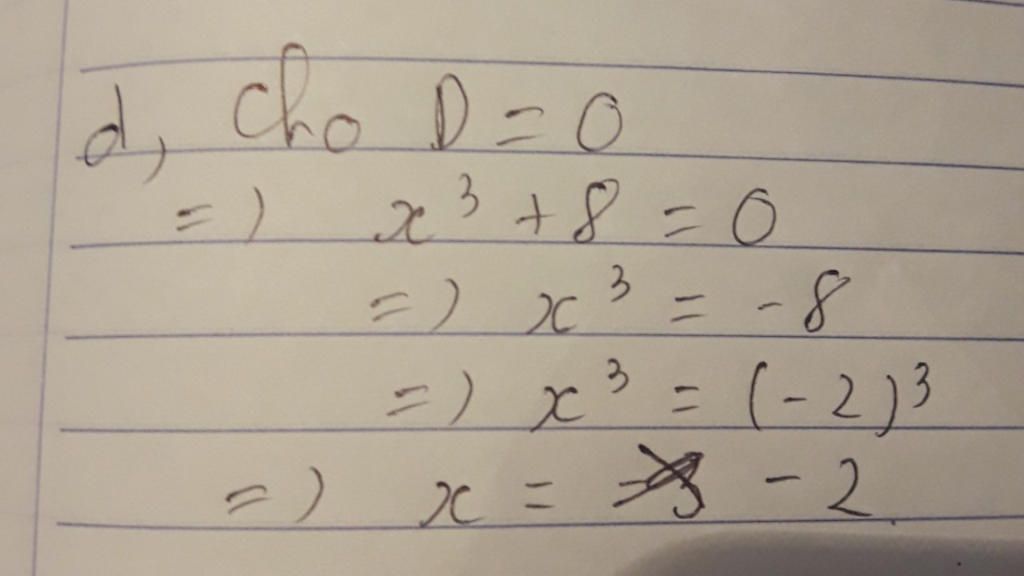 d, Cho D = 0
=) x³ + 8 = 0
=) x³ = -8
=) x³ = (-2)³
=) x = - 2